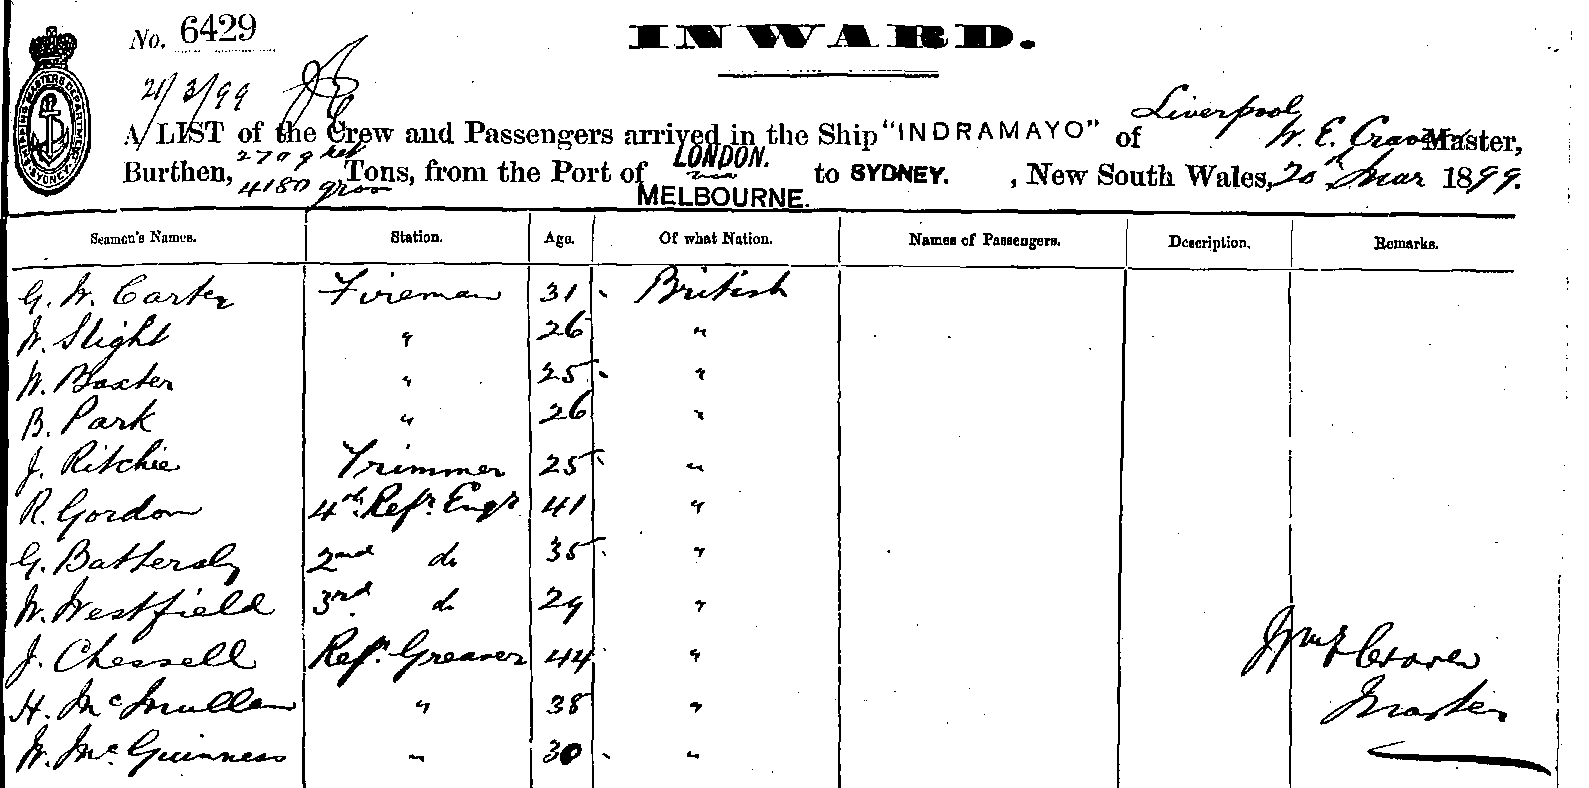 No. 6429
INWARD.
21/3/99
Liverpool
A LIST of the Crew and Passengers arrived in the Ship "INDRAMAYO" of W. E. Craven Master,
2709 net
LONDON.
Burthen, Tons, from the Port of via to SYDNEY. , New South Wales, 20th Mar 1899.
4180 gross
MELBOURNE.
SHIPPING MASTERS DEPARTMENT SYDNEY
Seamen's Names. Station. Age. Of what Nation. Names of Passengers. Description. Remarks.
G. W. Carter Fireman 31 British
W. Slight " 26 "
W. Baxter " 25 "
B. Park " 26 "
J. Ritchie Trimmer 25 "
R. Gordon 4th Refr. Engr 41 "
G. Battersby 2nd do 35 "
W. Westfield 3rd do 29 "
J. Chessell Refr. Greaser 44 "
Wm E Craven
H. McMullen " 38 "
Master
W. McGuinness " 30 "